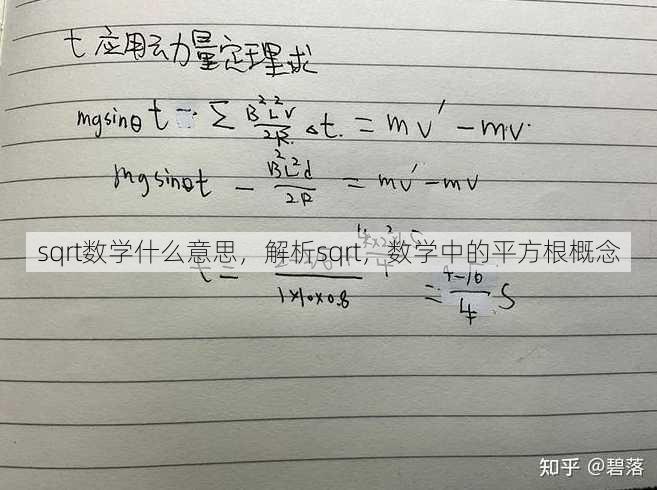 t 应用动量定理求
mgsinθ t - Σ B²L²v/2R Δt = mv' - mv
mgsinθt - B²L²d/2R = mv' - mv
sqrt数学什么意思，解析sqrt，数学中的平方根概念
t =
1×10×0.8
= 4-10/4 S
知乎 @碧落